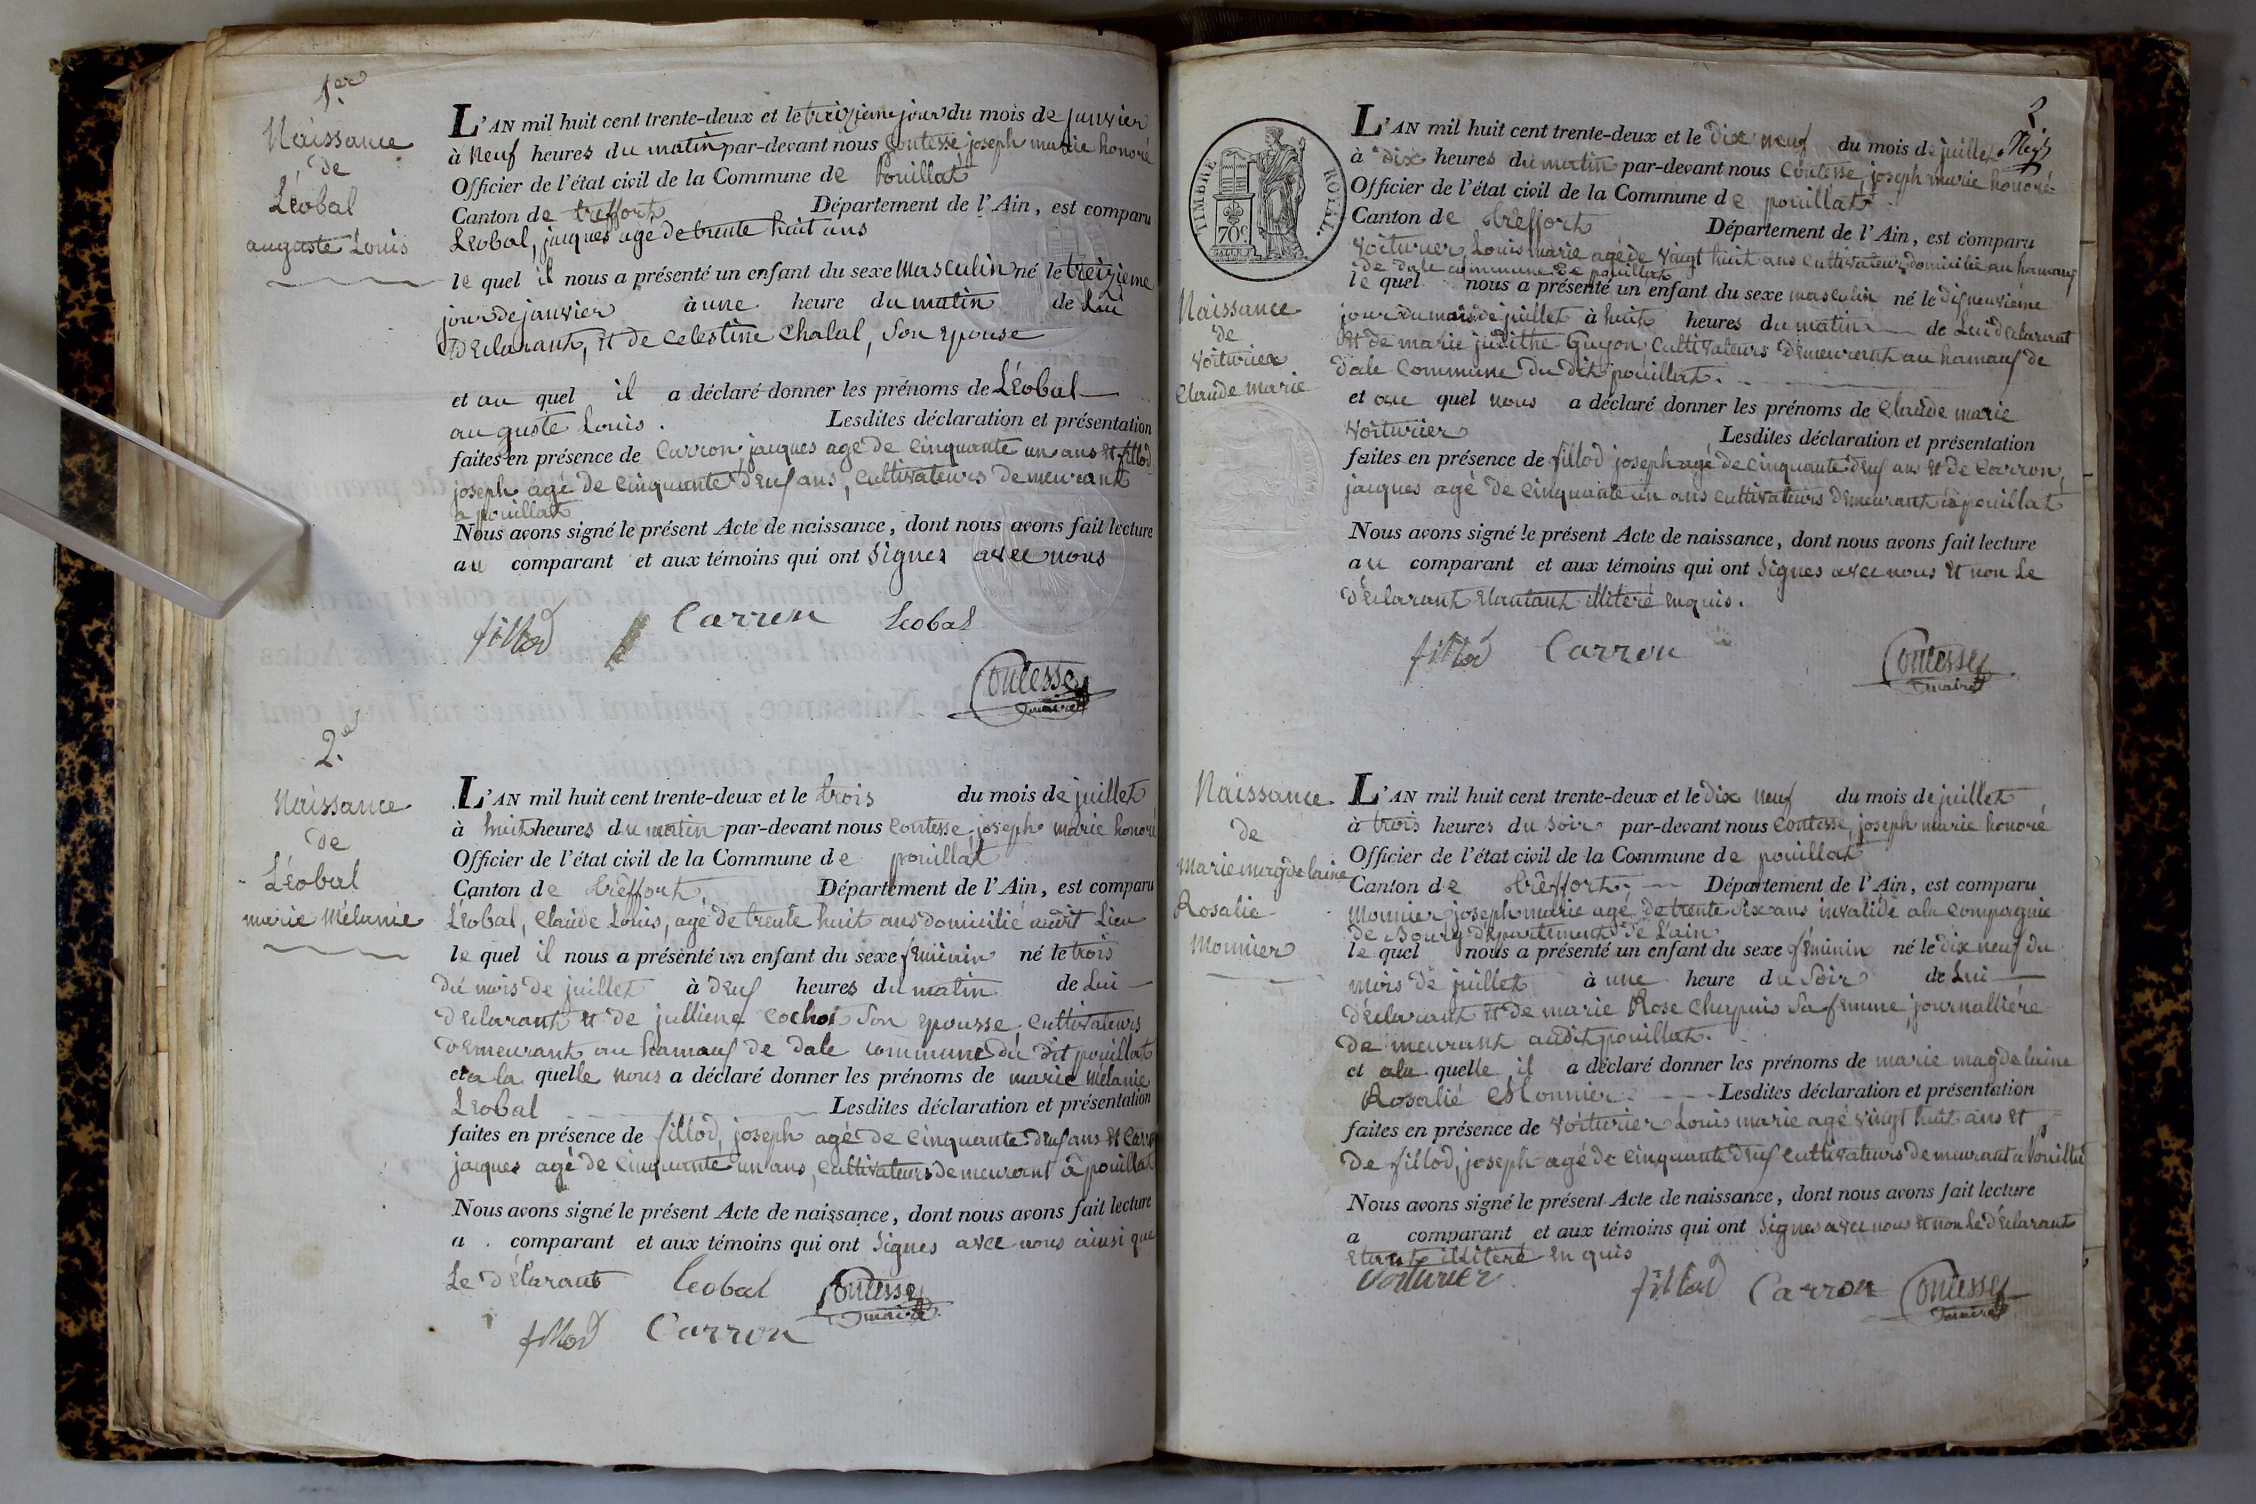 1.er
Naissance
de
Léobal
auguste Louis
L'AN mil huit cent trente-deux et le treizieme jour du mois de janvier
à neuf heures du matin par-devant nous Contesse joseph marie honoré
Officier de l'état civil de la Commune de Pouillat
Canton de treffort Département de l'Ain, est comparu
Léobal, jacques agé de trente huit ans
le quel il nous a présenté un enfant du sexe masculin né le treizieme
jour de janvier à une heure du matin de Lui
Déclarant, et de Celestine Chalal, Son epouse
et au quel il a déclaré donner les prénoms de Léobal
auguste Louis. Lesdites déclaration et présentation
faites en présence de Carron jacques agé de Cinquante un ans et fillod
joseph agé de Cinquante deuf ans, Cultivateurs demeurant
a pouillat
Nous avons signé le présent Acte de naissance, dont nous avons fait lecture
au comparant et aux témoins qui ont Signes avec nous
fillod Carron Leobal
Contesse
maire
2.e
Naissance
de
Léobal
marie Mélanie
L'AN mil huit cent trente-deux et le trois du mois de juillet
à huit heures du matin par-devant nous Contesse, joseph marie honoré
Officier de l'état civil de la Commune de pouillat
Canton de trèffort, Département de l'Ain, est comparu
Léobal, Claude Louis, agé de trente huit ans domicilié audit Lieu
le quel il nous a présenté un enfant du sexe féminin né le trois
du mois de juillet à deuf heures du matin de Lui
déclarant et de jullienne Cochet Son epousse Cultivateurs
demeurant au hamauf de dale commune du dit pouillat
et a la quelle nous a déclaré donner les prénoms de marie mélanie
Léobal Lesdites déclaration et présentation
faites en présence de fillod, joseph agé de Cinquante deuf ans et Carron
jacques agé de Cinquante un ans, Cultivateurs demeurant à pouillat
Nous avons signé le présent Acte de naissance, dont nous avons fait lecture
a comparant et aux témoins qui ont Signes avec nous ainsi que
Le déclarant Leobal Contesse
maire
fillod Carron
2
TIMBRE ROYAL
70c
Naissance
de
Voiturier
Claude marie
L'AN mil huit cent trente-deux et le dix neuf du mois de juillet
à dix heures du matin par-devant nous Contesse, joseph marie honoré
Officier de l'état civil de la Commune de pouillat
Canton de trèffort Département de l'Ain, est comparu
Voiturier, Louis marie agé de vaingt huit ans Cultivateur domicilié au hamauf
de dale commune de pouillat
le quel nous a présenté un enfant du sexe masculin né le disneuvieme
jour du mois de juillet à huit heures du matin de Lui déclarant
et de marie judithe Guyon Cultivateurs demeurant au hamauf de
dale Commune du dit pouillat.
et au quel nous a déclaré donner les prénoms de Claude marie
Voiturier Lesdites déclaration et présentation
faites en présence de fillod joseph agé de Cinquante deuf ans et de Carron,
jacques agé de Cinquante un ans cultivateurs demeurant à pouillat
Nous avons signé le présent Acte de naissance, dont nous avons fait lecture
au comparant et aux témoins qui ont Signes avec nous et non Le
déclarant illiteré enquis.
fillod Carron Contesse
maire
Naissance
de
Marie magdelaine
Rosalie
Monnier
L'AN mil huit cent trente-deux et le dix neuf du mois de juillet
à trois heures du soir par-devant nous Contesse, joseph marie honoré
Officier de l'état civil de la Commune de pouillat
Canton de trèffort, Département de l'Ain, est comparu
Monnier joseph marie agé de trente six ans invalide a la Compagnie
de Bourg département de L'ain
le quel nous a présenté un enfant du sexe féminin né le dix neuf du
mois de juillet à une heure du Soir de Lui
déclarant et de marie Rose Chapuis Sa femme, journallière
demeurant audit pouillat.
et a la quelle il a déclaré donner les prénoms de marie magdelaine
Rosalié Monnier Lesdites déclaration et présentation
faites en présence de Voiturier Louis marie agé vingt huit ans et
de fillod, joseph agé de Cinquante deuf Cultivateurs demeurant a Pouillat
Nous avons signé le présent Acte de naissance, dont nous avons fait lecture
a comparant et aux témoins qui ont Signes avec nous et non Le déclarant
Etant illiteré en quis
Voiturier fillod Carron Contesse
maire